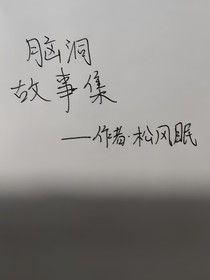 脑洞
故事集
——作者·松风眠